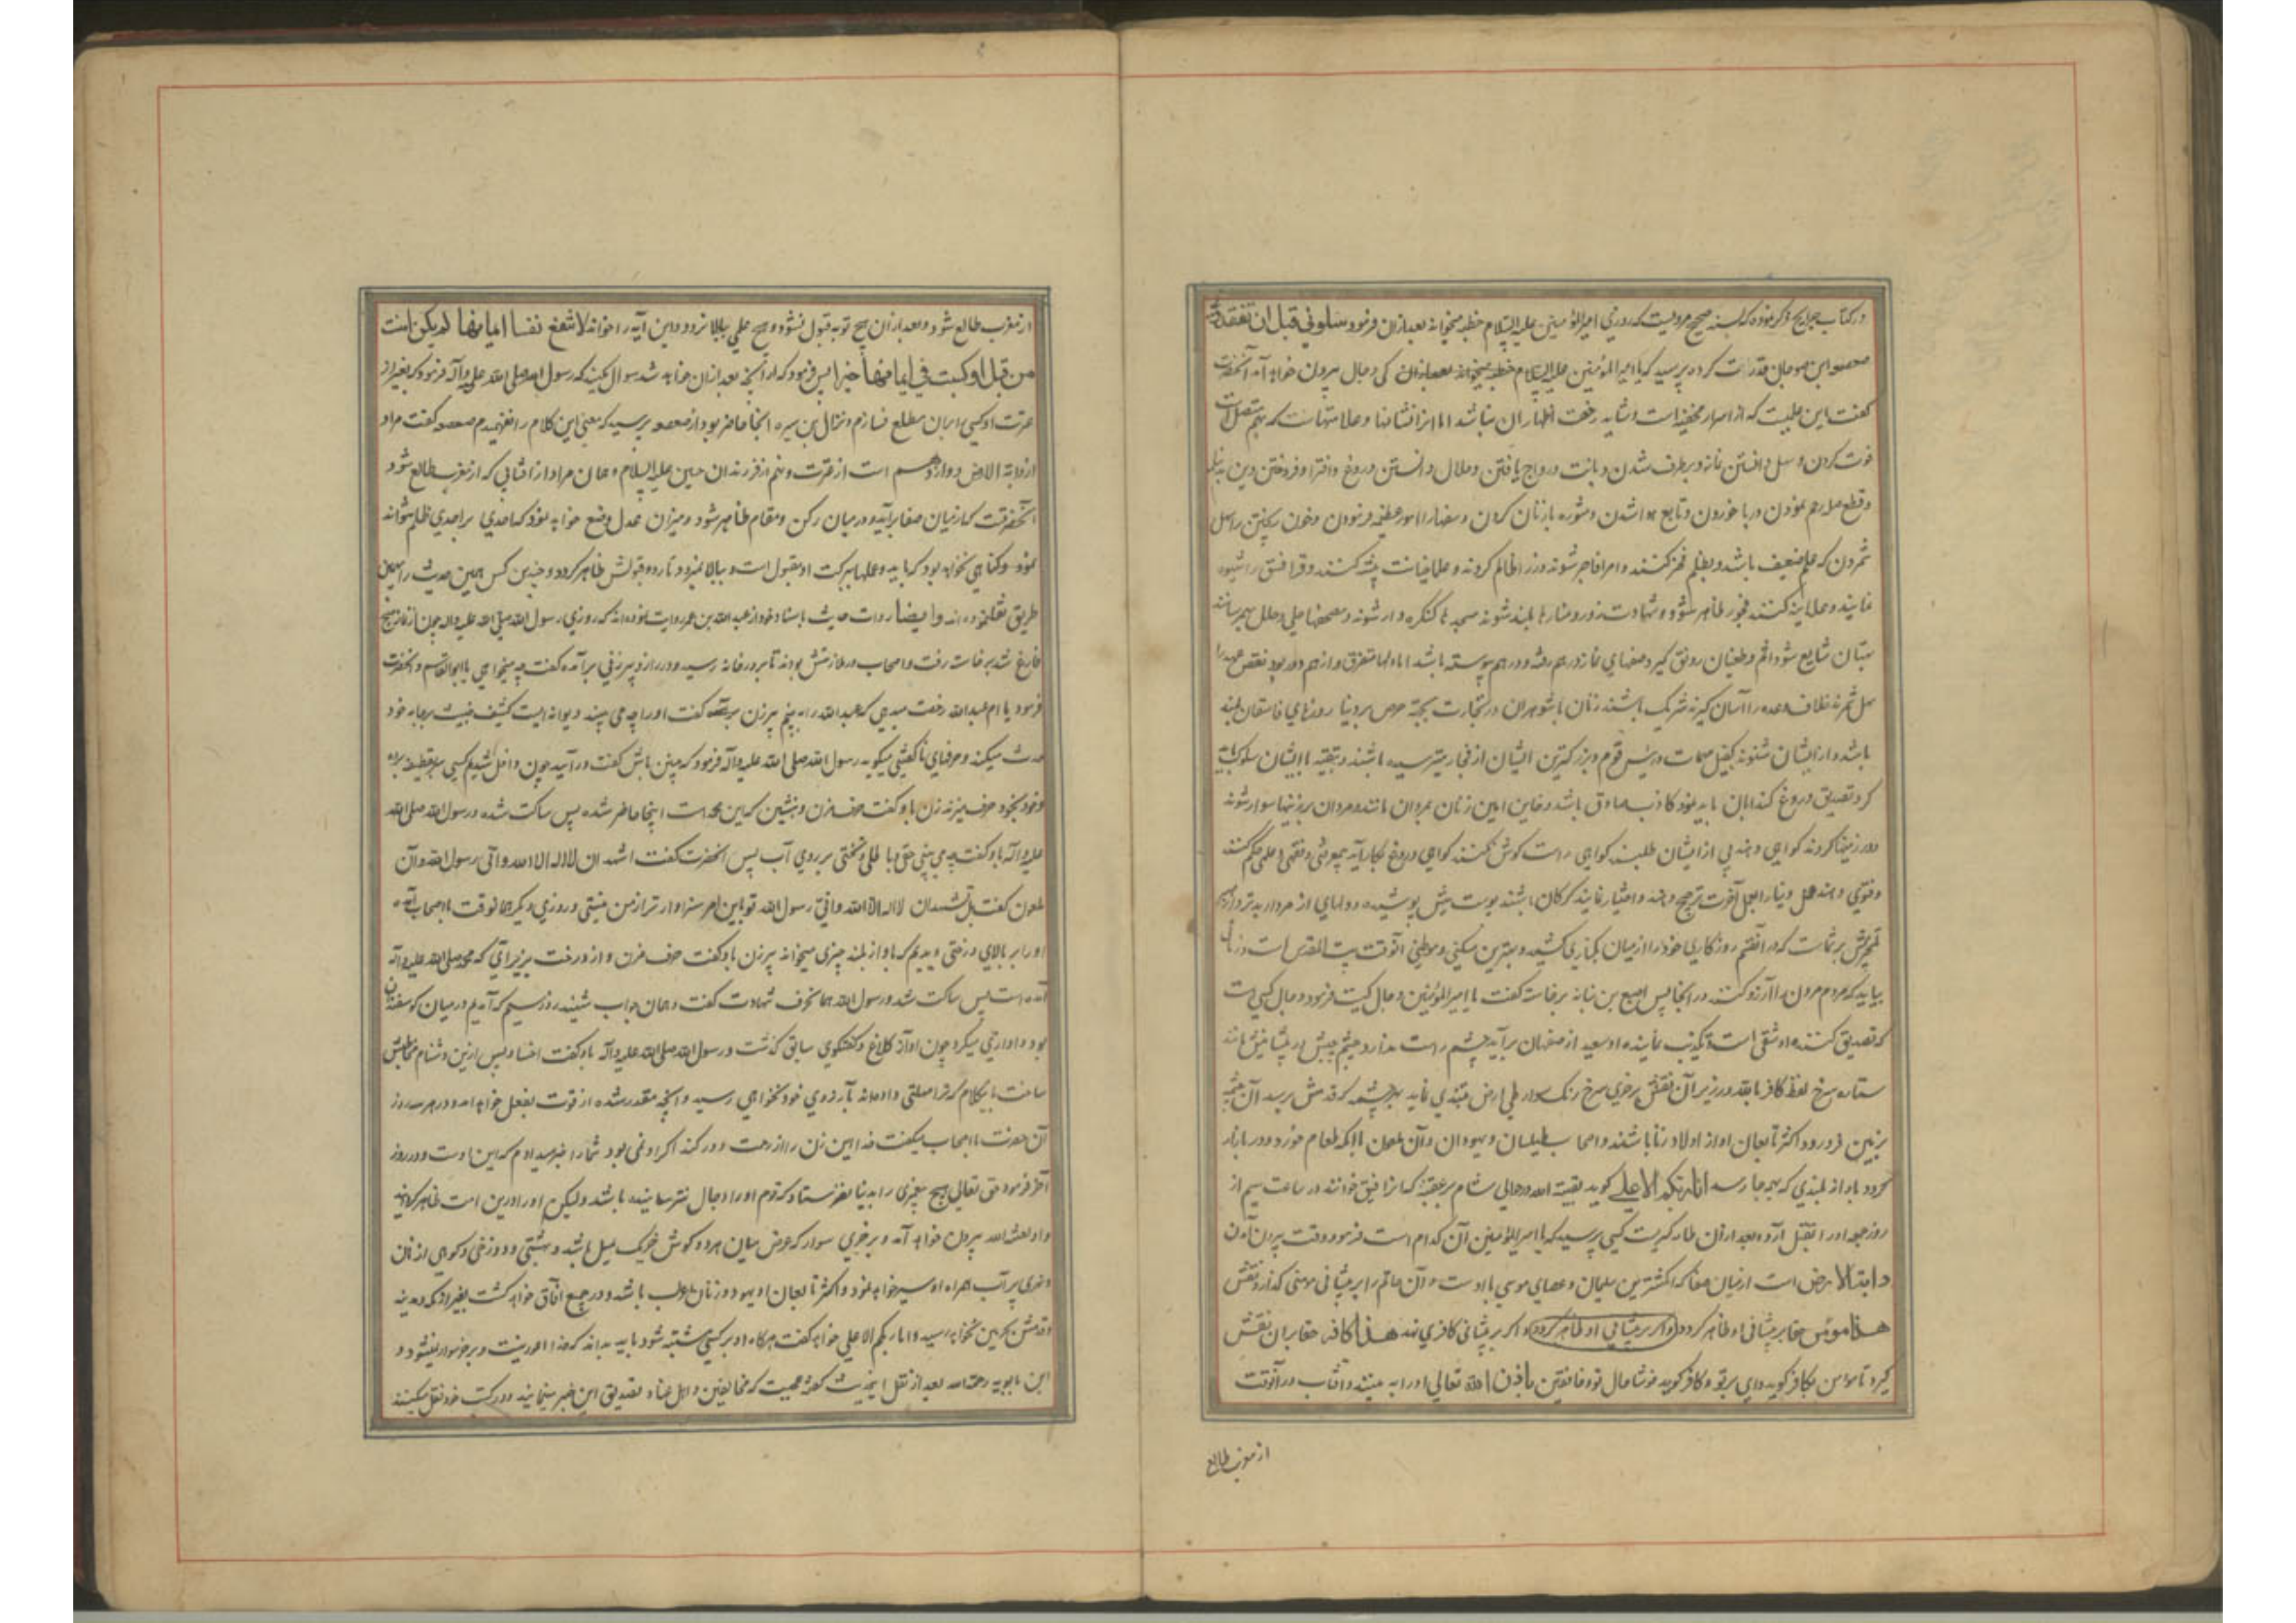 در کتاب جرایح ذکر نموده که بسند صحیح مرویست که روزی امیرالمؤمنین علیه السلام خطبه میخواند بعد ازان فرمود سلونی قبل ان تفقدونی
صعصعه ابن صوحان قد راست کرده پرسید که یا امیرالمؤمنین علیه السلام خطبه میخواند بعد ازان کی دجال بیرون خواهد آمد آنحضرت
گفت این علمیست که از اسرار مخفیه است و شاید رخصت اظهار ان نباشد اما انرا نشانها و علامتهاست که بهم متصل است
فوت کردن و سهل دانستن نماز و برطرف شدن دیانت و رواج یافتن و حلال دانستن دروغ و افترا و فروختن دین بدنیا
و قطع صله رحم نمودن و ربا خوردن و تابع هوا شدن و مشوره با زنان کردن و سفها را امور عظیمه فرمودن و خون ریختن را سهل
شمردن که علم ضعیف باشد و بظلم فخر کنند و امرا فاجر شوند و وزرا ظالم کردند و علما خیانت پیشه کنند و قرا فسق را شیوه
نمایند و علانیه کنند فجور ظاهر شود و شهادت زور و منارها بلند شوند مسجدها کنکره دار شوند و مصحفها حلی و حلل بهم رسانند
بهتان شایع شود و اثم و طغیان رونق گیرد صفهای نماز در هم رفته و در هم پیوسته باشد اما دلها متفرق و از هم دور بود نقض عهد را
سهل شمرند خلاف وعده را آسان گیرند شریک باشند زنان با شوهران در تجارت بجهة حرص بر دنیا روزهای فاسقان بلند
باشد و از ایشان شنوند کفیل مهمات و رئیس قوم و بزرکترین ایشان از فجار ترسیده باشند و بتقیه با ایشان سلوک باید
کرد تصدیق دروغ کندابان باید نمود کاذب صادق باشد و خاین امین زنان بمردان مانند و مردان بر زینها سوار شوند
و در زمینها کردند کواهی دهند بی از ایشان طلبند کواهی راست کوش نکنند کواهی دروغ بکار آید بیمعرفتی و فقهی و علمی حکم کنند
و فتوی دهند عمل دنیا را بر عمل آخرت ترجیح دهند و اختیار نمایند کرکان باشند پوست میش پوشیده و دلهای از مردار بدتر دارند
بیاید که مردم مردن را آرزو کنند در انجا پس اصبغ بن نباته برخاست گفت یا امیرالمؤمنین دجال کیست فرمود دجال کسی است
که تصدیق کننده او شقی است و تکذیب نماینده او سعید از اصفهان برآید چشم راست ندارد و چشم چپش در پیشانیش مانند
ستاره سرخ لفظ کافر بالله در زیر آن نقش بر خری سرخ رنک سوار طی ارض مبتدی نماید بهر چشمه که قدمش برسد آن چشمه
بزمین فرو رود اکثر تابعان او از اولاد زنا باشند و اصحاب طیلسان و یهودان و آن ملعون با آنکه طعام خورد و در بازار
گردد باواز بلندی که بهمه جا رسد انا ربکم الاعلی کوید بقیة الله در حوالی شام بر عقبه که انرا فیق خوانند در ساعت سیم از
روز جمعه او را بقتل آرد و بعد ازان طامه کبریست کسی پرسید که یا امیرالمؤمنین آن کدام است فرمود وقت بیرون آمدن
دابة الارض است از میان صفا که انکشترین سلیمان و عصای موسی با اوست و آن خاتم را بر پیشانی مومنی کذارد نقش
هذا مؤمن حقا بر پیشانی او ظاهر کردد و اگر بر پیشانی او ظاهر کردد و اگر بر پیشانی کافری نهد هذا کافر حقا بر ان نقش
کیرد تا مومن بکافر کوید وای بر تو و کافر کوید خوشا حال تو و خافقین باذن الله تعالی او را به بینند و آفتاب در آنوقت
از مغرب طالع
از مغرب طالع شود و بعد ازان هیچ توبه قبول نشود و هیچ عملی ببالا نرود و این آیه را خواند لا تنفع نفسا ایمانها لم یکن امنت
من قبل او کسبت فی ایمانها خیرا پس فرمود که از آنچه بعد ازان خواهد شد سوال مکنید که رسول الله صلی الله علیه وآله فرمود که بغیر از
عترت او کسی را بران مطلع نسازم و نزال بن سبره انجا حاضر بود از صعصعه پرسید که معنی این کلام را نفهمیدم صعصعه گفت مراد
از دابة الارض دوازدهم است از عترت و نهم از فرزندان حسین علیه السلام و همان مراد از آفتابی که از مغرب طالع شود
آنحضرتست که از میان صفا برآید و در میان رکن و مقام ظاهر شود و میزان عدل وضع خواهد نمود که احدی بر احدی ظلم نتواند
نمود و کناهی نخواهد بود که باید و عملها ببرکت او مقبول است و ببالا میرود تا رد و قبولش ظاهر کردد و چندین کس همین حدیث را بهمین
طریق نقل نموده اند و ایضا روات حدیث باسناد خود از عبدالله بن عمر روایت نموده اند که روزی رسول الله صلی الله علیه وآله چون از نماز صبح
فارغ شد برخاست رفت و اصحاب در ملازمتش بودند تا بر در خانه رسید و در را زد پیرزنی برآمده گفت چه میخواهی یا ابوالقاسم و آنحضرت
فرمود یا ام عبدالله رخصت میدهی که عبدالله را به بینم پیرزن گفت او را چه می بینید دیوانه ایست کثیف خبیث بر جامه خود
حدث میکند و حرفهای ناکفتنی میکوید رسول الله صلی الله علیه وآله فرمود که من باش گفت در آیید چون داخل شدیم کسی بر قطیفه
و خود بخود حرف میزند زن باو گفت حرف مزن و بنشین که این محمد است اینجا حاضر شده پس ساکت شده و رسول الله صلی الله
علیه وآله باو گفت چه می بینی حق و باطلی و تختی بر روی آب پس آنحضرت گفت اشهد ان لا اله الا الله و انی رسول الله و آن
ملعون گفت بل تشهد ان لا اله الا الله و انی رسول الله تو باین امر سزاوارتر از من نیستی و روزی دیگر همانوقت با اصحاب آمده
او را بر بالای درختی دیدیم که باواز بلند چیزی میخواند پیرزن باو گفت حرف مزن و از درخت بزیر آی که محمد صلی الله علیه وآله
آمده است پس ساکت شد و رسول الله همان حرف شهادت گفت و همان جواب شنید روز سیم که آمدیم در میان کوسفندان
بود و ادا میکرد چون آواز کلاغ و کفتکوی سابق کذشت و رسول الله صلی الله علیه وآله باو گفت اخسا و پس ازین دشنام مخاطبش
ساخت باینکلام که ترا مهلتی داده اند بآرزوی خود نخواهی رسید و آنچه مقدر شده از قوت بفعل خواهد آمد و در هر سه روز
آن حضرت با اصحاب میکفت خدا این زن را از رحمت دور کند اکر او نمی بود شما را خبر میدادم که این اوست و در روز
آخر فرمود حق تعالی هیچ پیغمبری را بدنیا نفرستاد که قوم او را از دجال نترسانیده باشد و لیکن او را درین امت ظاهر کردانید
و او لعنه الله بیرون خواهد آمد و بر خری سوار که عرض میان هر دو کوش خرک میل باشد و بهشتی و دوزخی و کوهی از نان
و نهری پر آب همراه او سیر خواهد نمود و اکثر تابعان او یهود و زنان و عرب باشد و در جمیع آفاق خواهد کشت بغیر از مکه و مدینه
و قدمش بحرمین نخواهد رسید و انا ربکم الاعلی خواهد گفت هرگاه او بر کسی مشتبه شود باید بداند که خدا اعور نیست و بر خر سوار نمیشود و
ابن بابویه رحمه الله بعد از نقل اینحدیث گفته عجبست که مخالفین و اهل عناد تصدیق این خبر مینمایند و در کتب خود نقل میکنند